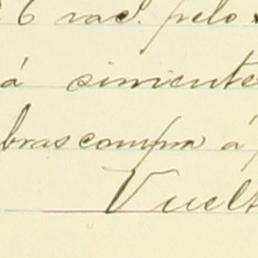 6 rac. pelo
á simiente
bras compra á
Vuelt